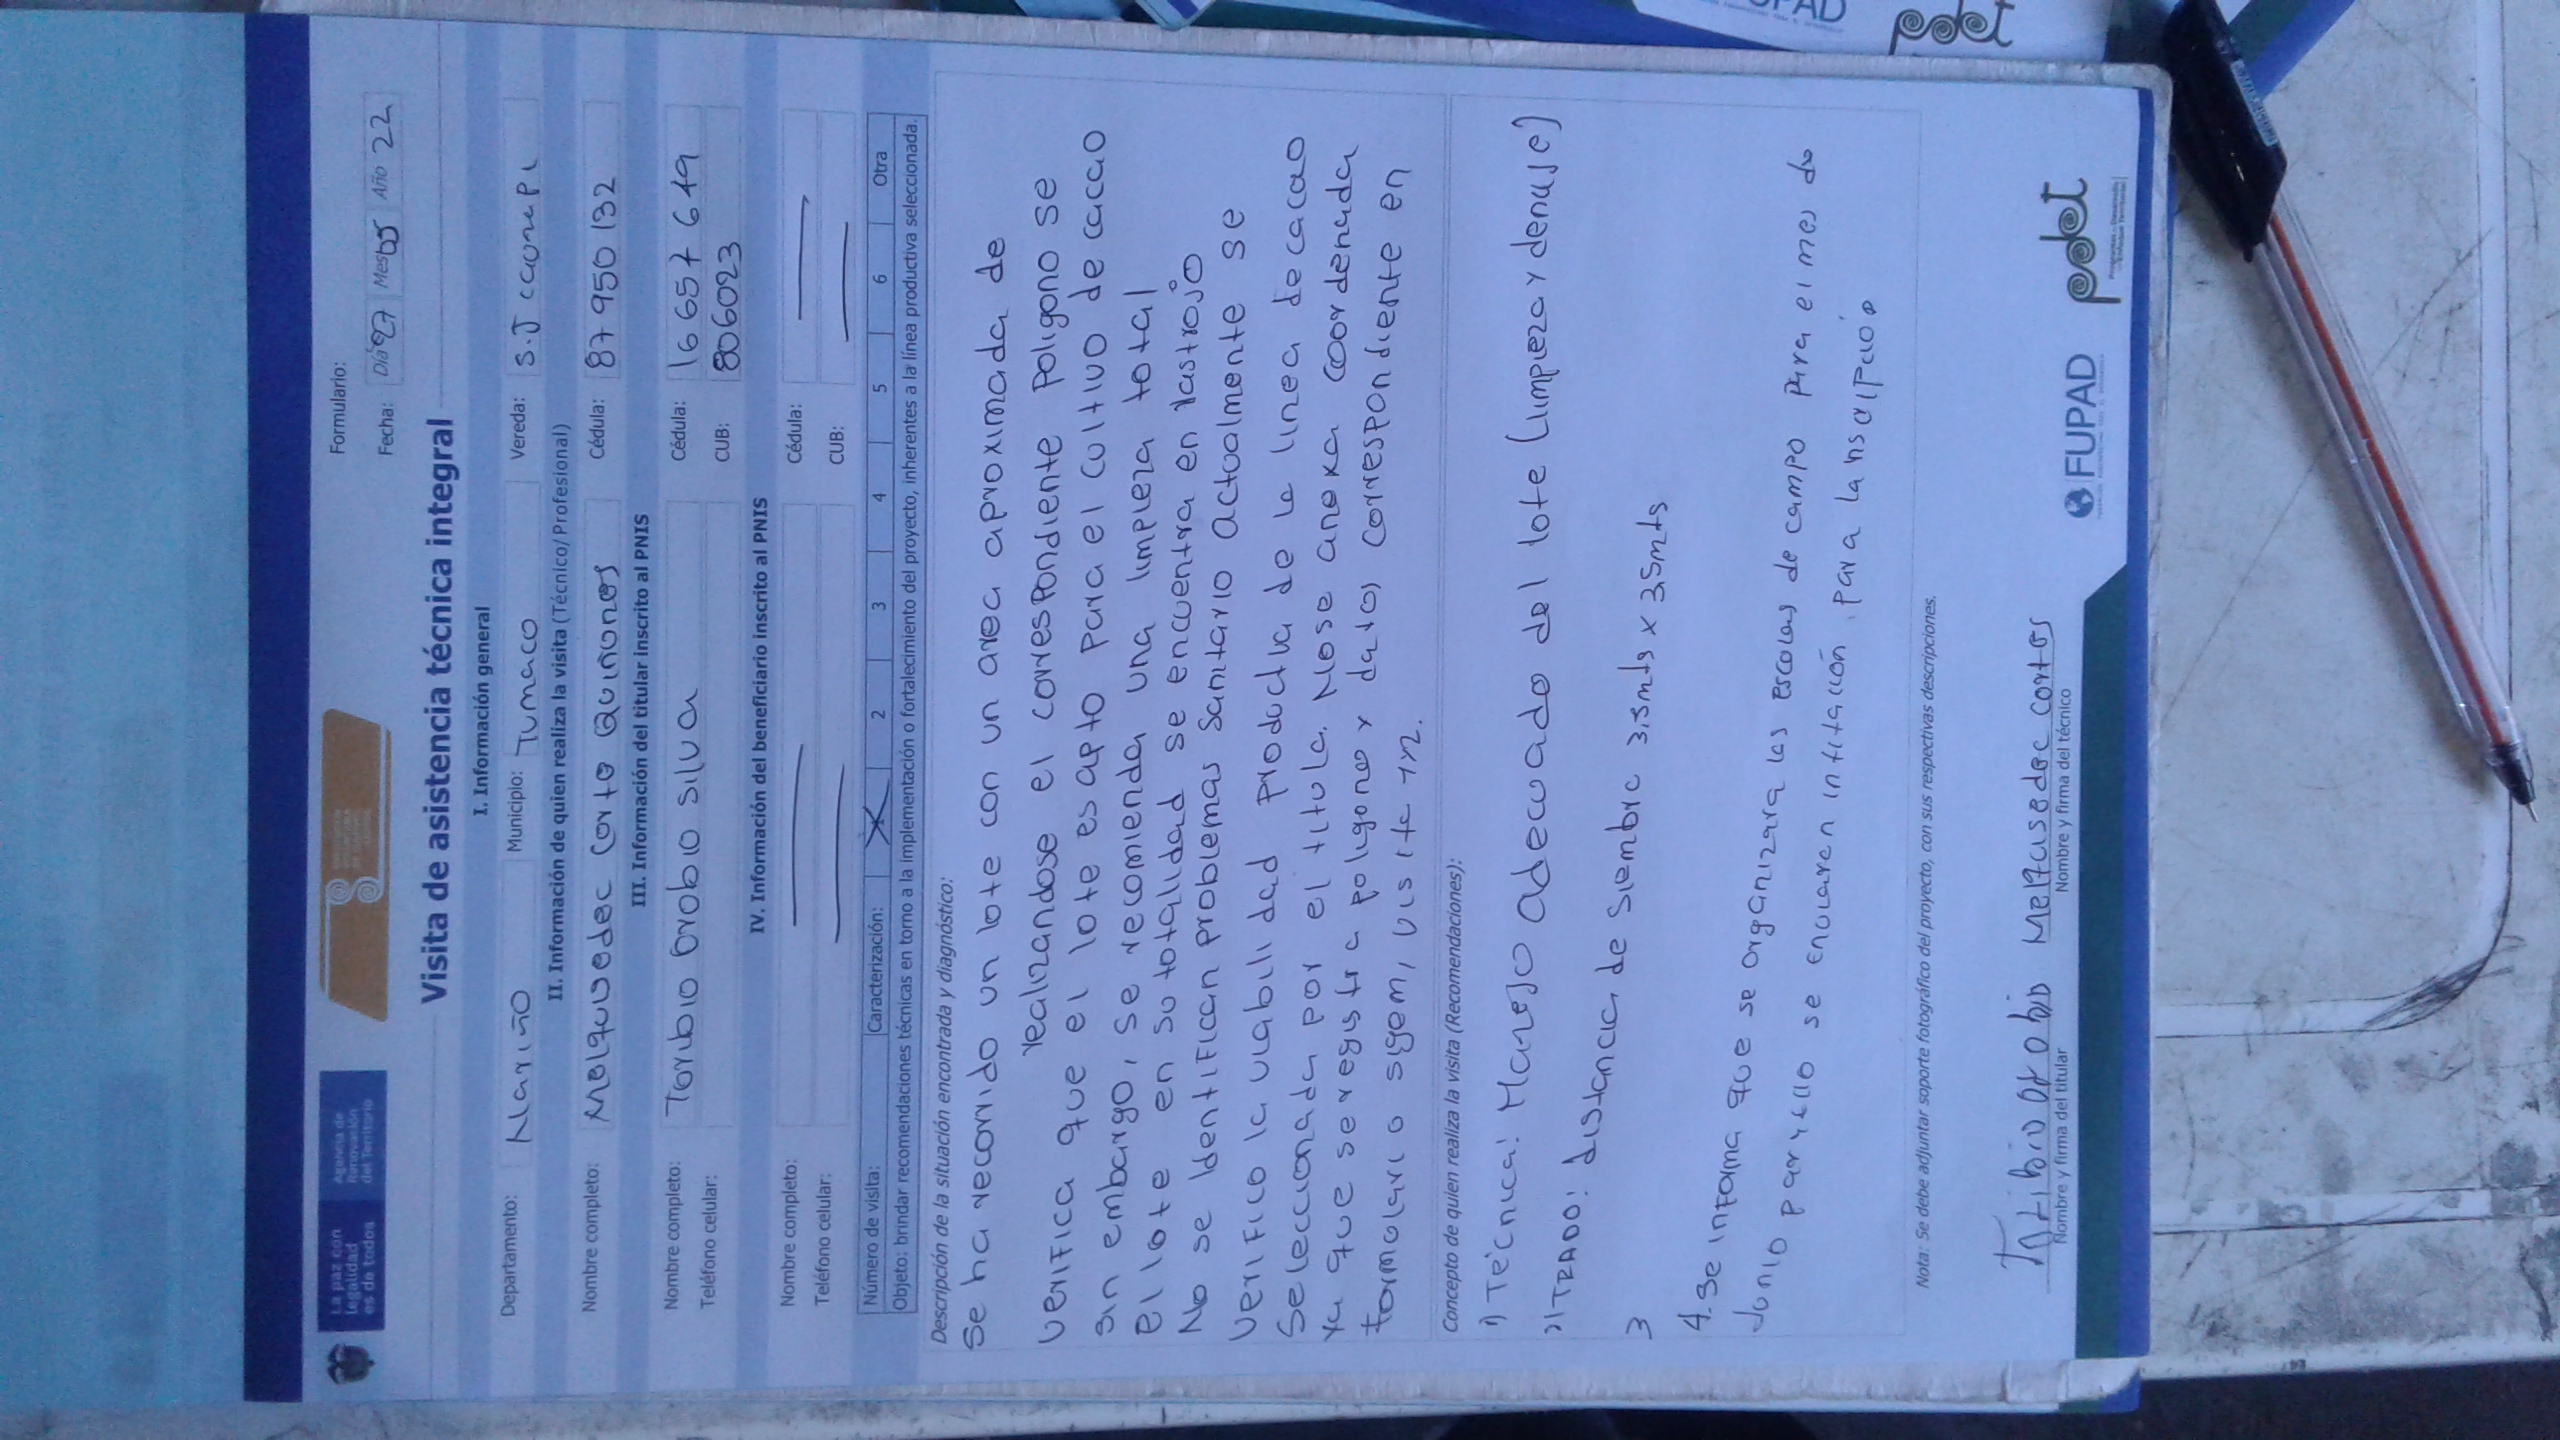 La paz con
legalidad
es de todos
Agencia de
Renovación
del Territorio
Formulario:
Fecha: Día 27 Mes 05 Año 22
Visita de asistencia técnica integral
I. Información general
Departamento: Nariño Municipio: Tumaco Vereda: S.J caunapi
II. Información de quien realiza la visita (Técnico/ Profesional)
Nombre completo: Melquisedec Corte Quiñones Cédula: 87950132
III. Información del titular inscrito al PNIS
Nombre completo: Toribio Orobio Silva Cédula: 16657649
Teléfono celular: CUB: 806023
IV. Información del beneficiario inscrito al PNIS
Nombre completo: Cédula:
Teléfono celular: CUB:
Número de visita: Caracterización: X 2 3 4 5 6 Otra
Objeto: brindar recomendaciones técnicas en torno a la implementación o fortalecimiento del proyecto, inherentes a la línea productiva seleccionada.
Descripción de la situación encontrada y diagnóstico:
Se ha recorrido un lote con un area aproximada de
realizandose el correspondiente poligono se
verifica que el lote es apto para el cultivo de cacao
sin embargo, se recomienda una limpieza total
el lote en su totalidad se encuentra en rastrojo
No se identifican problemas sanitario actualmente se
verifico la viabilidad productiva de la linea de cacao
Seleccionada por el titula. No se anexa coordenada
ya que se registra poligono y datos correspondiente en
formulario sygem, visite 1x2.
Concepto de quien realiza la visita (Recomendaciones):
1) Técnica: Manejo adecuado del lote (limpieza y denaje)
2) TRADO: distancia de siembre 3.5mts x 3.5mts
3
4. Se informa que se organizara las escolas de campo para el mes de
Junio para ello se encuaren invitación para la inscripción
Nota: Se debe adjuntar soporte fotográfico del proyecto, con sus respectivas descripciones.
Toribio Orobio Melquisedec cortes
Nombre y firma del titular Nombre y firma del técnico
FUPAD
pdet